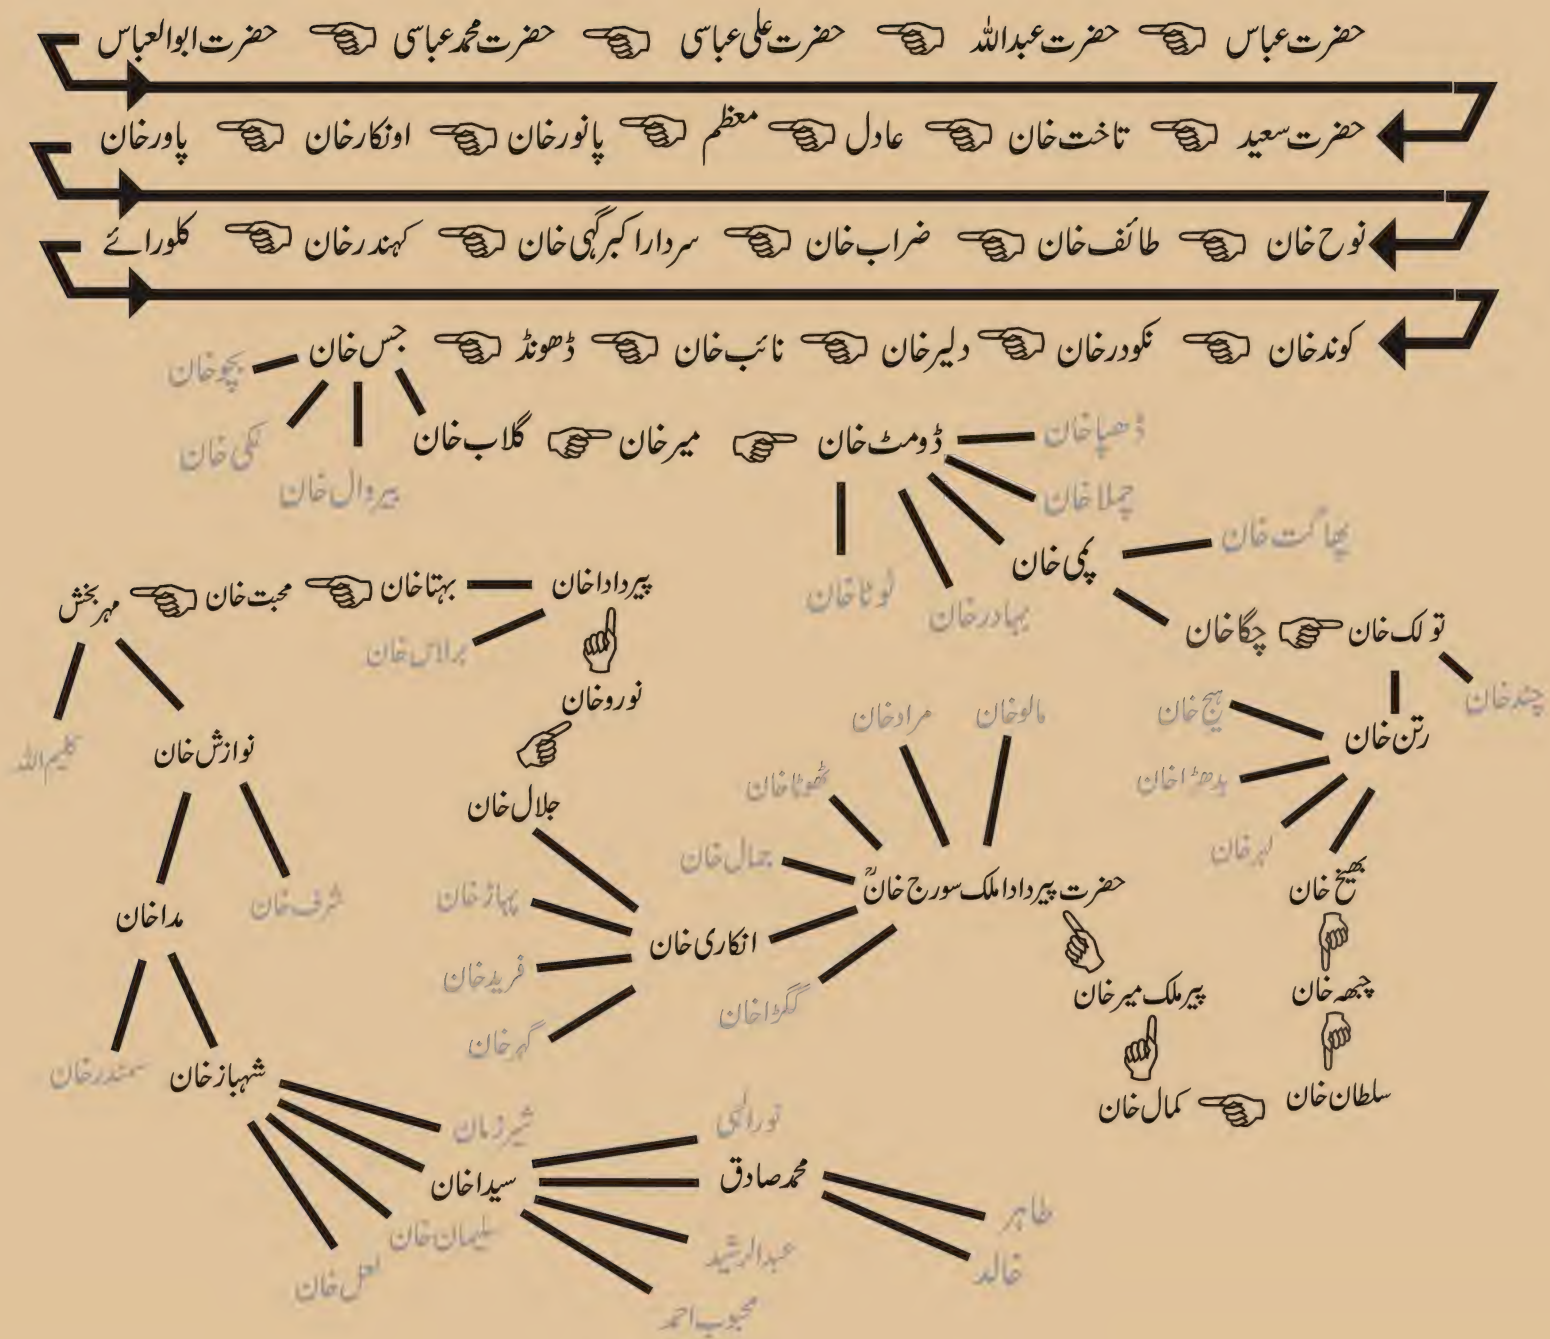 حضرت عباس حضرت عبداللہ حضرت علی عباسی حضرت محمد عباسی حضرت ابوالعباس
حضرت سعید تاخت خان عادل معظم پانور خان اونکار خان پاور خان
نوح خان طائف خان ضراب خان سردار اکبر گہی خان کہندر خان کلورائے
کوند خان نکودر خان دلیر خان نائب خان ڈھونڈ جس خان
بچو خان
لکی خان
پیر وال خان
گلاب خان میر خان ڈومٹ خان ڈھپا خان
چملا خان
پمی خان
بھاگت خان
بہادر خان
لوٹا خان
چگا خان تولک خان
چند خان
رتن خان
ہیج خان
بدھڑا خان
لہر خان
بھیخ خان
چبھہ خان
سلطان خان کمال خان
پیر ملک میر خان
حضرت پیر دادا ملک سورج خانؒ
مالو خان
مراد خان
ٹھوٹا خان
جمال خان
انکاری خان
گکڑا خان
جلال خان
پہاڑ خان
فرید خان
گہر خان
نورو خان
پیر دادا خان بہتا خان محبت خان مہر بخش
برلاس خان
نوازش خان
کلیم اللہ
شرف خان
مدا خان
سمندر خان
شہباز خان
شیر زمان
سیدا خان
سلیمان خان
لعل خان
نور الٰہی
محمد صادق
عبدالرشید
محبوب احمد
طاہر
خالد